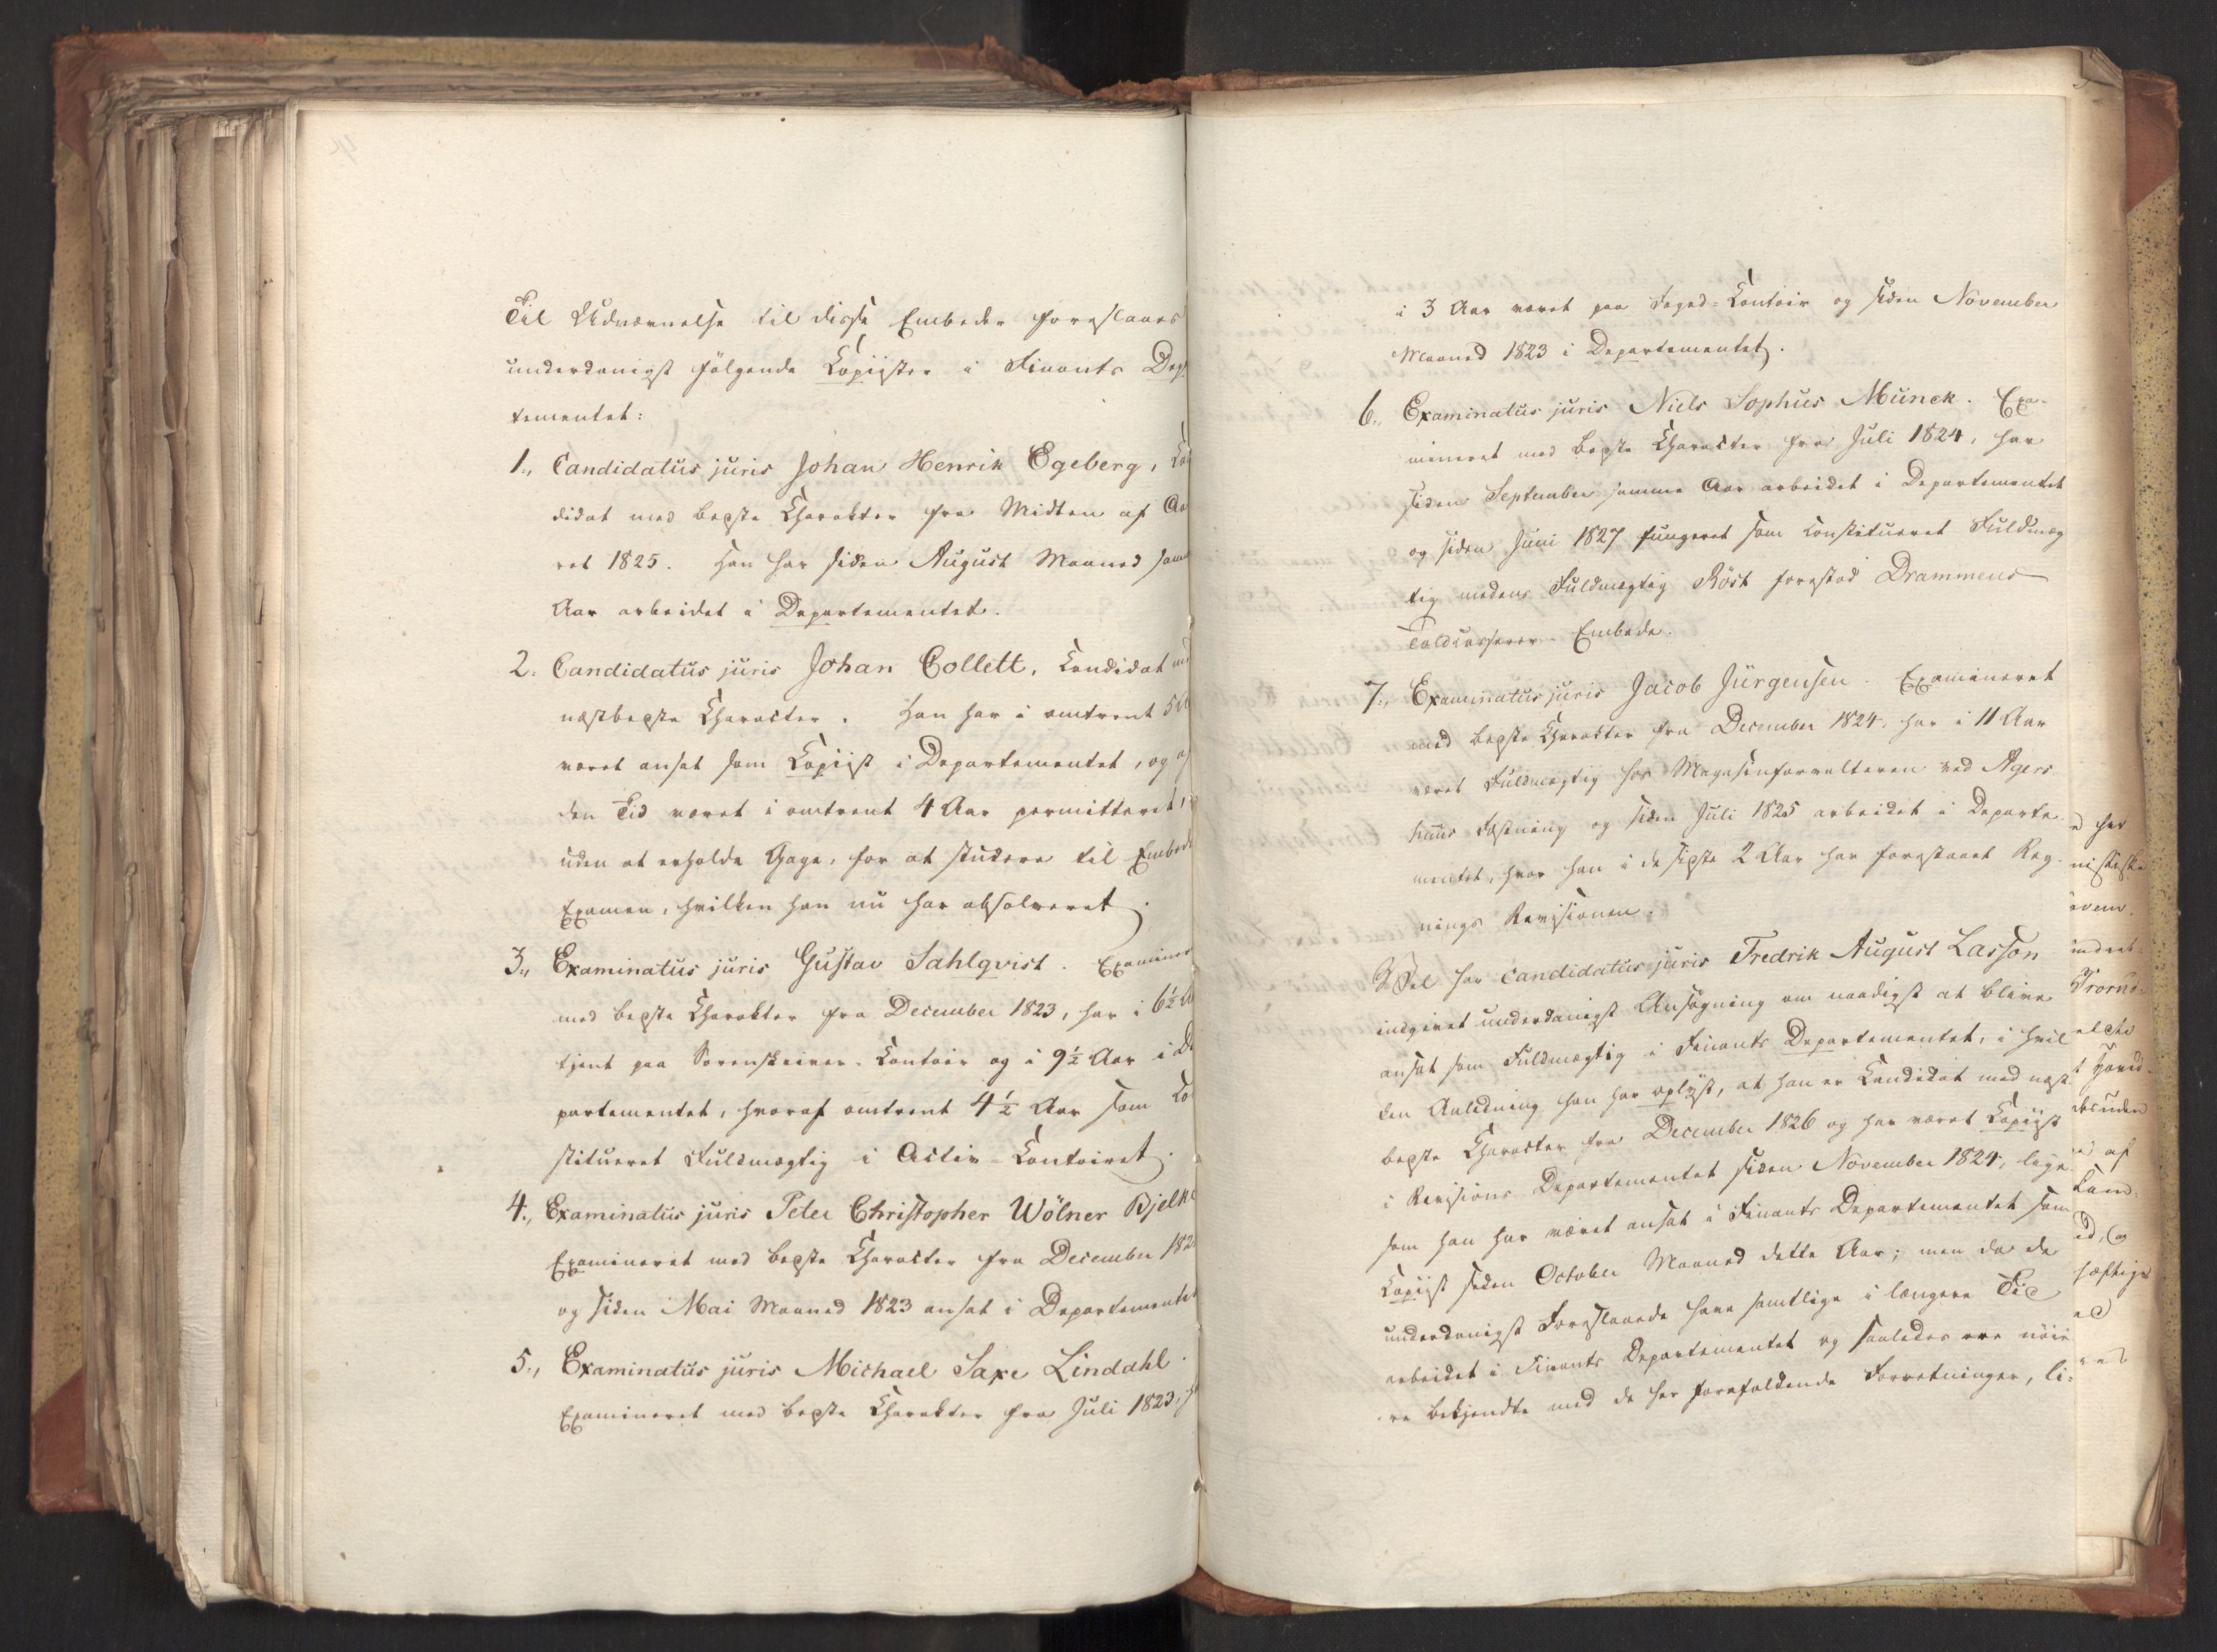 Til Udnævnelse til disse Embeder foreslaaes
underdanigst følgende Copiister i Finants Dep
tementet:
1., Candidatus juris Johan Henrik Egeberg, Ca
didat med bedste Charakter fra Midten af Aa
ret 1825. Han har siden August Maaned sam
Aar arbeidet i Departementet.
2. Candidatus juris Johan Collett. Candidat
næstbedste Character. Han har i omtrent 5
været ansat som Copiist i Departementet, og
den Tid været i omtrent 4 Aar permitteret,
uden at erholde Gage, for at studere til Embeds
Examen, hvilken han nu har absolveret.
3., Examinatus juris Gustav Sahlqvist. Examiner
med bedste Charakter fra December 1823, har i 6½
tjent paa Sorenskriver-Contoir og i 9½ Aar i De
partementet, hvoraf omtrent 4½ Aar som Co
stitueret Fuldmægtig i Activ-Contoiret.
4., Examinatus juris Peter Christopher Wölner Bjelke
Examineret med bedste Character fra December 182
og siden Mai Maaned 1823 ansat i Departementet
5., Examinatus juris Michael Saxe Lindahl.
Examineret med bedste Charakter fra Juli 1823, h
i 3 Aar været paa Foged-Contoir og siden November
Maaned 1823 i Departementet.
6., Examinatus juris Niels Sophus Munck. Exa-
mineret med bedste Character fra Juli 1824, har
siden September samme Aar arbeidet i Departementet
og siden Juni 1827 fungeret som constitueret Fuldmæg
tig medens Fuldmægtig Röst forestod Drammens
Toldcasserer-Embede.
7., Examinatus juris Jacob Jürgensen. Examineret
med bedste Character fra December 1824, har i 11 Aar
været Fuldmægtig hos Magasinforvalteren ved Agers
huus Fæstning og siden Juli 1825 arbeidet i Departe-
mentet, hvor han i de sidste 2 Aar har forestaaet Reg-
nings Revisionen.
Vel har Candidatus juris Fredrik August Lasson
indgivet underdanigst Ansøgning om naadigst at blive
ansat som Fuldmægtig i Finants Departementet, i hvil
ken Anledning han har oplyst, at han er Candidat med næst
bedste Character fra December 1826 og har været Copiist
i Revisions Departementet siden November 1824, lige
som han har været ansat i Finants Departementet som
Copiist siden October Maaned dette Aar; men da de
underdanigst Foreslaaede have samtlige i længere Tid
arbeidet i Finants Departementet og saaledes ere nöie
re bekjendte med de her forefaldende Forretninger, li-